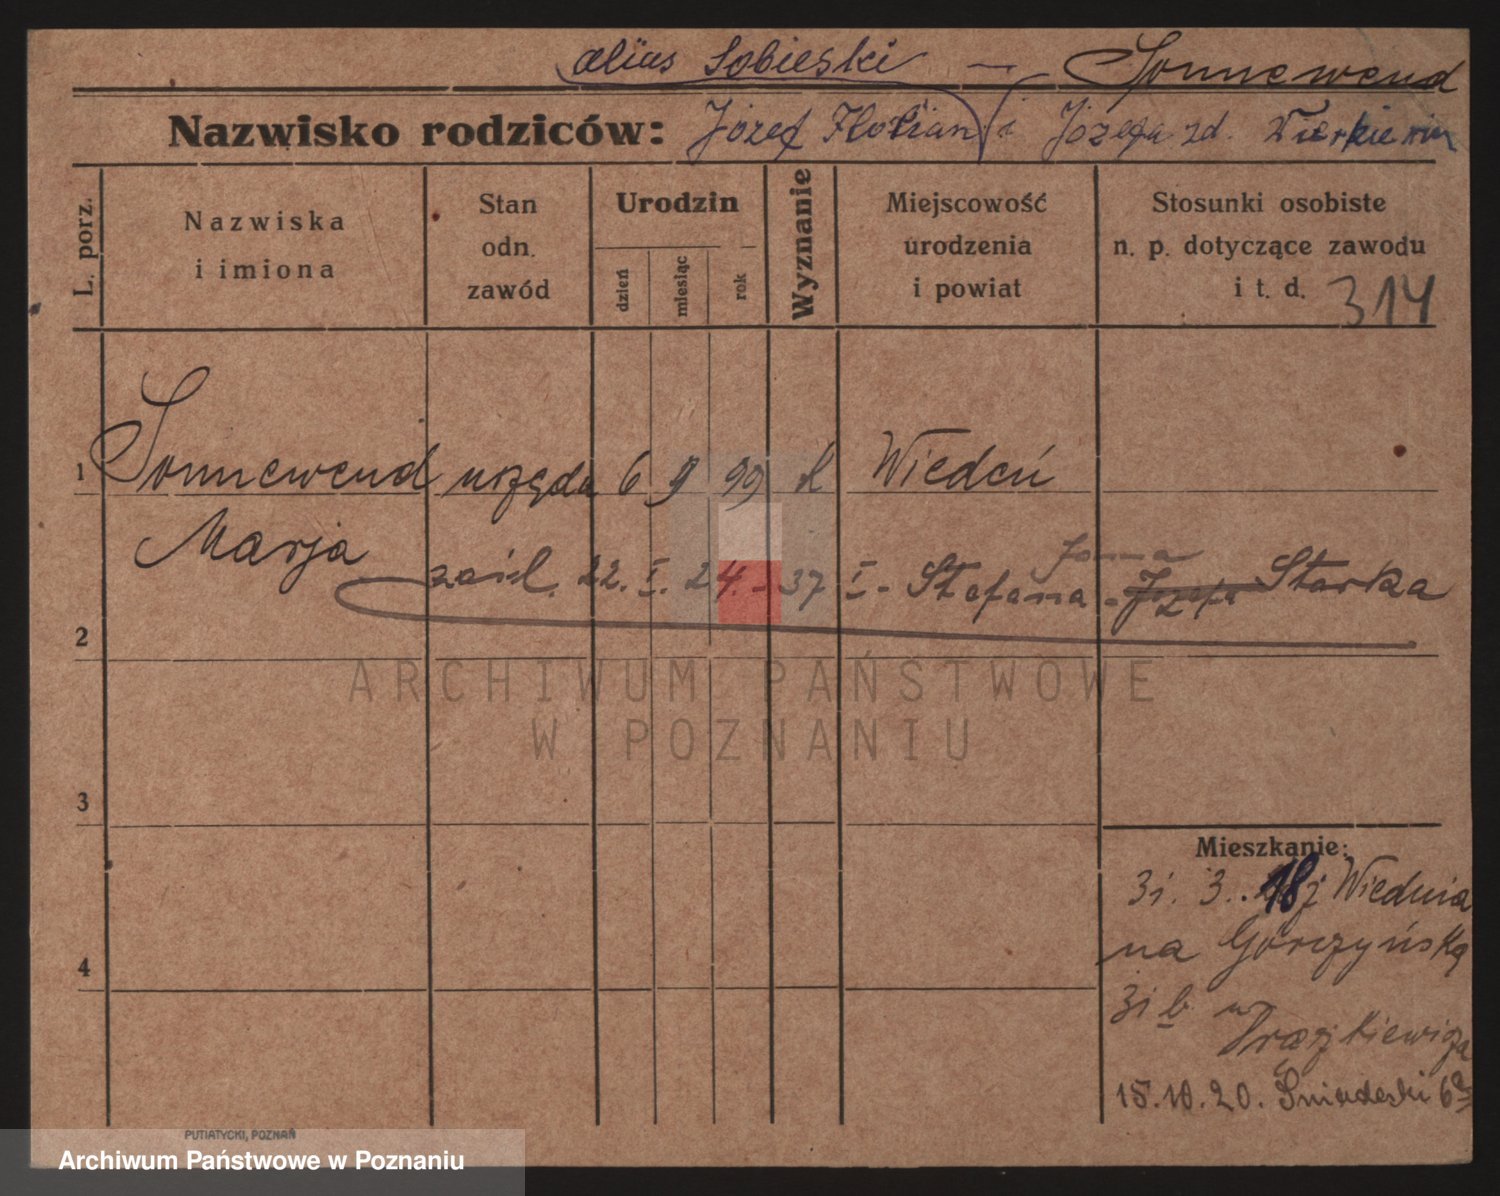 alias Sobieski — Sonnewend
Nazwisko rodziców: Józef Florian i Józefa zd.
L. porz.
Nazwiska
i imiona
Stan
odn.
zawód
Urodzin
dzień
miesiąc
rok
Wyznanie
Miejscowość
urodzenia
i powiat
Stosunki osobiste
n. p. dotyczące zawodu
i t. d. 314
1 Sonnewend urzędn 6 9 99 k Wiedeń
Marja
zaśl. 22. I. 24. - 37 I - Stefania - Józefa Starka
Janina
2
ARCHIWUM PAŃSTWOWE
W POZNANIU
3
Mieszkanie:
31. 3. 18 j Wiednia
na Górczyńską
4
31 b
15.10.20. Śniadecki 6
PUTIATYCKI, POZNAŃ
Archiwum Państwowe w Poznaniu